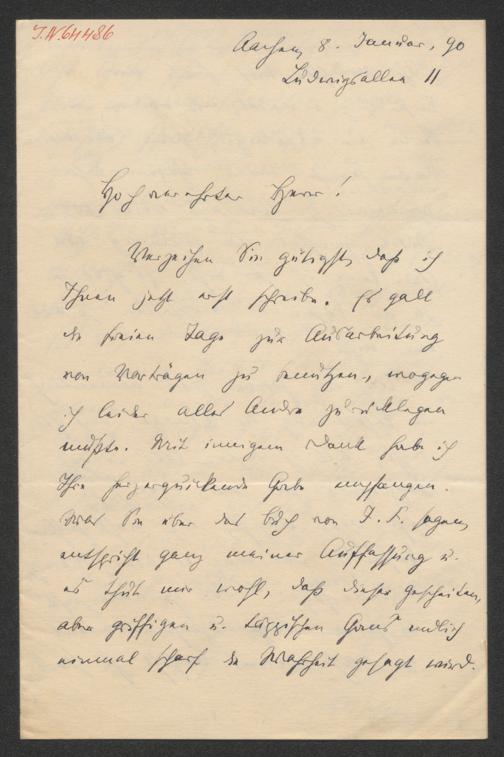 J.N. 64486
Aachen, 8. Januar, 90
Ludwigsallee 11
Hochverehrter Herr!
Verzeihen Sie gütigst, daß ich
Ihnen jetzt erst schreibe. Es galt
die freien Tage zur Ausarbeitung
von Vorträgen zu benutzen, wogegen
ich leider alles Andre zurücklegen
mußte. Mit innigem Dank habe ich
Ihre herzerquickende Gabe empfangen.
Was Sie über das Buch von J. F. sagen,
entspricht ganz meiner Auffassung u.
es thut mir wohl, daß dieser gescheiten,
aber giftigen u. Gans endlich
einmal scharf die Wahrheit gesagt wird.